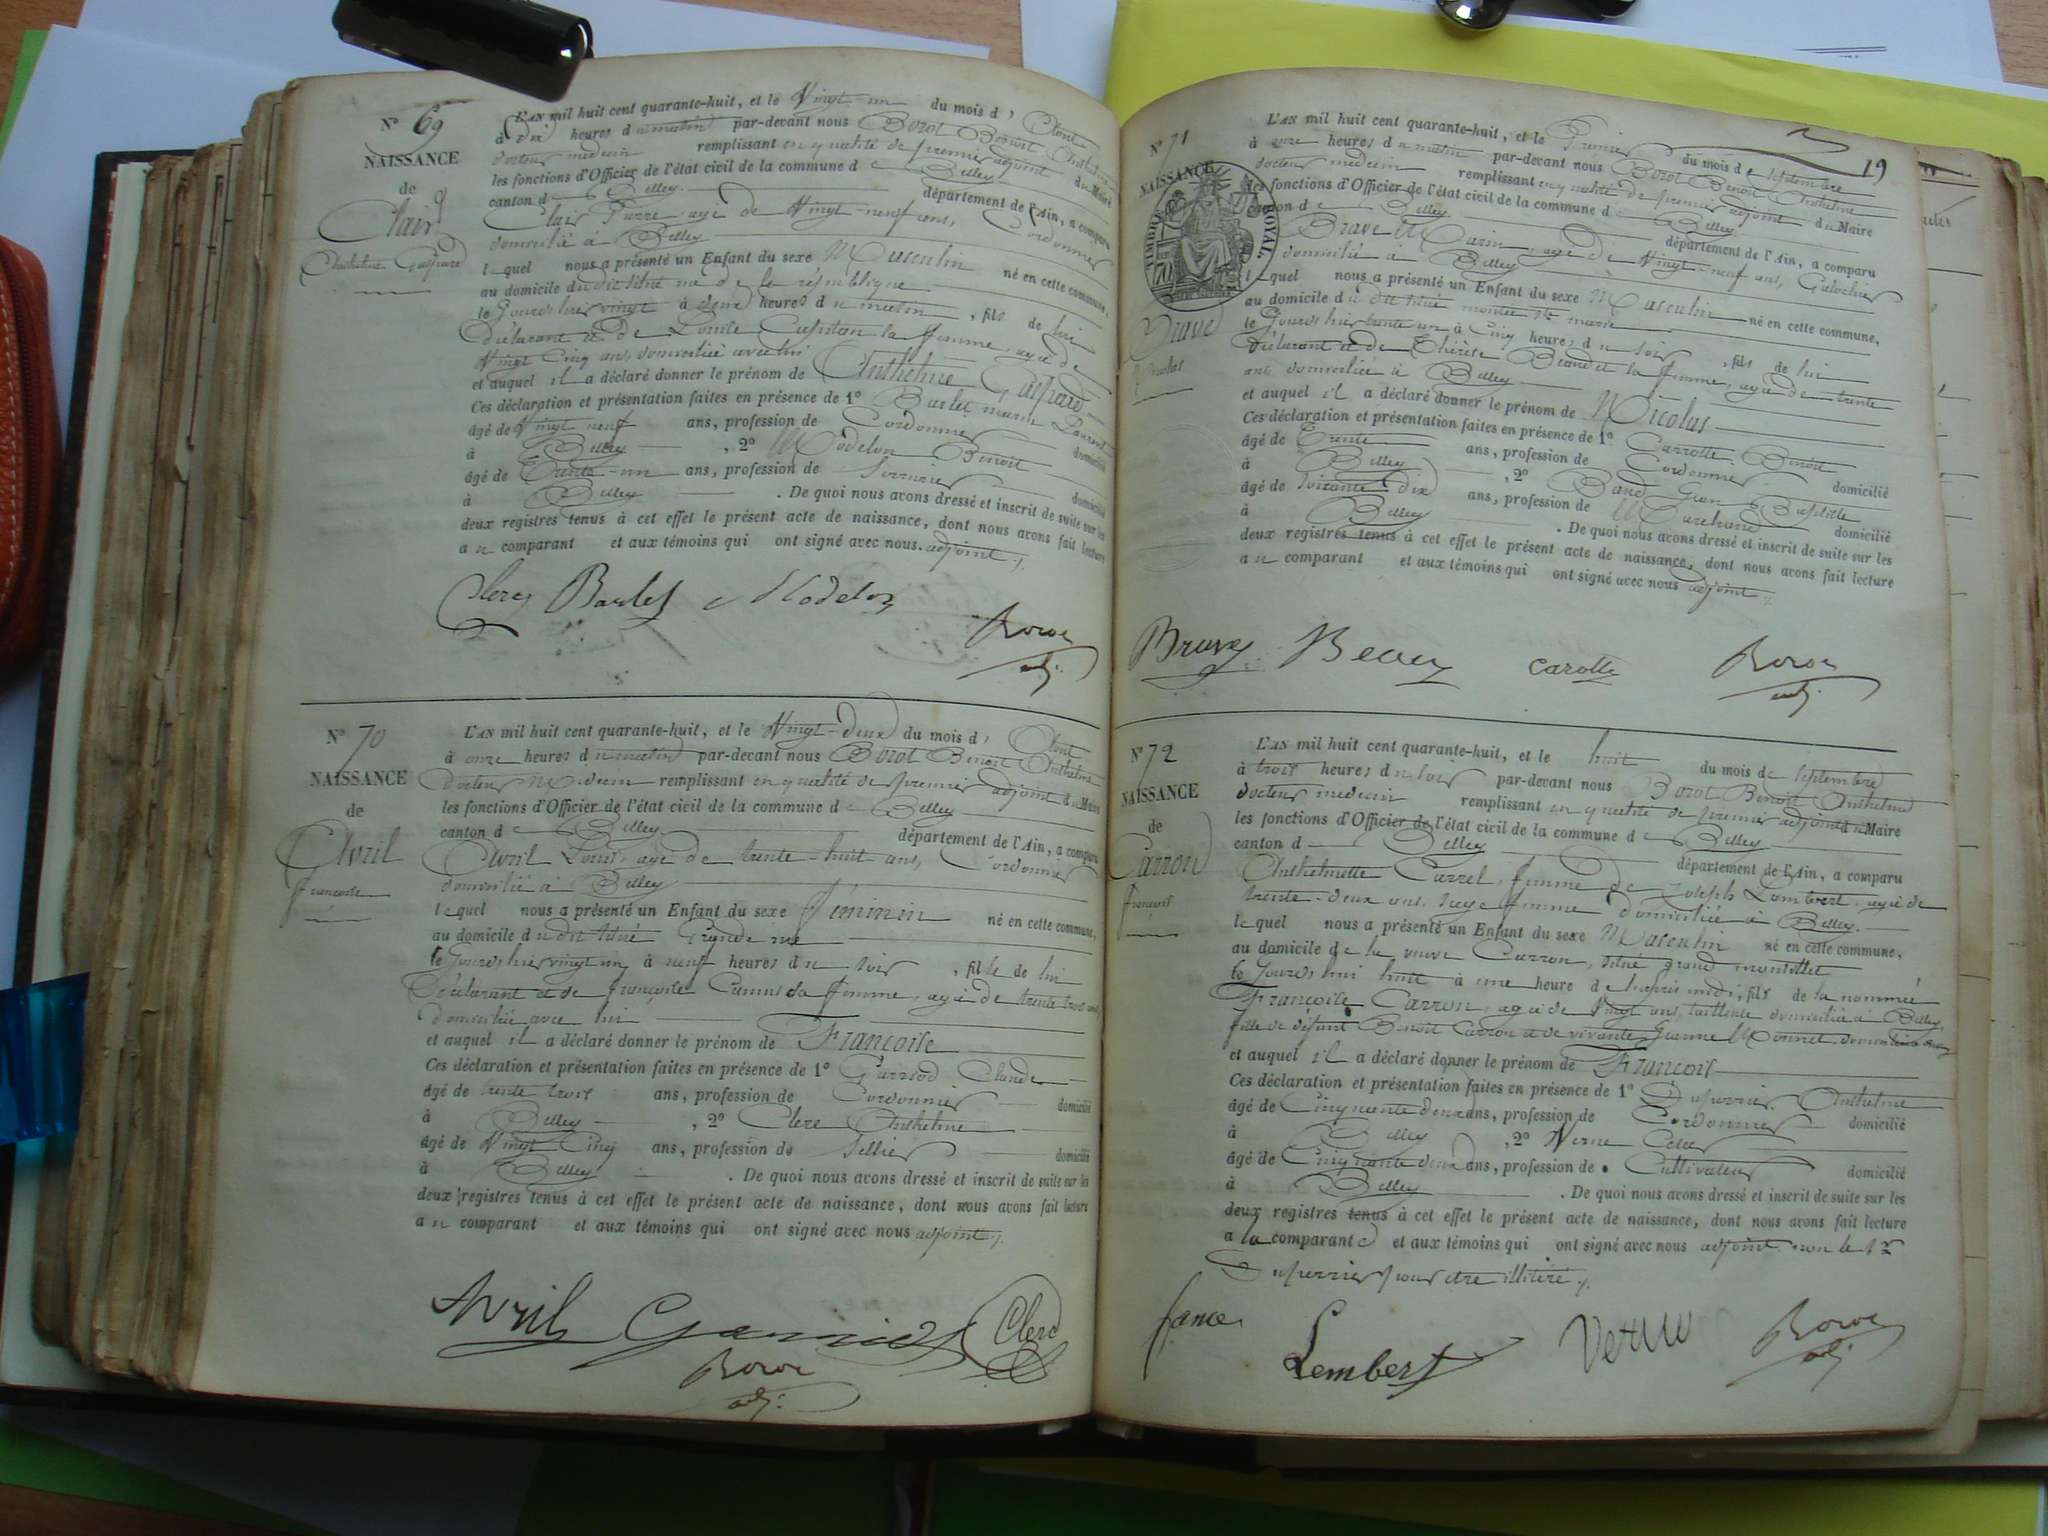 N° 69
NAISSANCE
de
Clair
Anthelme Gaspard
L'AN mil huit cent quarante-huit, et le Vingt-un du mois d' Aout
à dix heures du matin par-devant nous Borot Benoit Anthelme
docteur medecin remplissant en qualité de premier adjoint du Maire
les fonctions d'Officier de l'état civil de la commune de Belley
canton de Belley département de l'Ain, a comparu
Clair Pierre agé de Vingt-neuf ans, Cordonnier
domicilié à Belley
lequel nous a présenté un Enfant du sexe Masculin né en cette commune,
au domicile du dit titré rue de la république
le Jourd'hier vingt à deux heures du matin, fils de lui
déclarant et de la femme, agée de
Vingt Cinq ans, domiciliée avec lui
et auquel il a déclaré donner le prénom de Anthelme Gaspard
Ces déclaration et présentation faites en présence de 1° Barlet marie Laurent
âgé de Vingt neuf ans, profession de Cordonnier domicilié
à Belley, 2° Modelon Benoit
âgé de Trente-un ans, profession de Serrurier domicilié
à Belley. De quoi nous avons dressé et inscrit de suite sur les
deux registres tenus à cet effet le présent acte de naissance, dont nous avons fait lecture
au comparant et aux témoins qui ont signé avec nous. adjoint
Clerc Barlet Modelon
Borot
adj.
N° 70
NAISSANCE
de
Avril
françoise
L'AN mil huit cent quarante-huit, et le Vingt-deux du mois d' Aout
à onze heures du matin par-devant nous Borot Benoit Anthelme
docteur Medecin remplissant en qualité de premier adjoint du Maire
les fonctions d'Officier de l'état civil de la commune de Belley
canton de Belley département de l'Ain, a comparu
Avril Louis, agé de trente-huit ans, Cordonnier
domicilié à Belley
lequel nous a présenté un Enfant du sexe féminin né en cette commune,
au domicile du dit titré Grande rue
le Jourd'hier vingt un à neuf heures du soir, fille de lui
Déclarant et de françoise Camus sa femme, agée de trente trois ans,
domiciliée avec lui
et auquel il a déclaré donner le prénom de Françoise
Ces déclaration et présentation faites en présence de 1° Claude
âgé de trente trois ans, profession de Cordonnier domicilié
à Belley, 2° Clerc Anthelme
âgé de Vingt Cinq ans, profession de Sellier domicilié
à Belley. De quoi nous avons dressé et inscrit de suite sur les
deux registres tenus à cet effet le présent acte de naissance, dont nous avons fait lecture
au comparant et aux témoins qui ont signé avec nous adjoint
Avril Clerc
Borot
adj.
19
N° 71
NAISSANCE
TIMBRE ROYAL
Brave
Nicolas
L'AN mil huit cent quarante-huit, et le Premier du mois de Septembre
à onze heures du matin par-devant nous Borot Benoit Anthelme
docteur medecin remplissant en qualité de premier adjoint du Maire
les fonctions d'Officier de l'état civil de la commune de Belley
canton de Belley département de l'Ain, a comparu
Brave Marin, agé de Vingt-neuf ans, Galochier
domicilié à Belley
lequel nous a présenté un Enfant du sexe Masculin né en cette commune,
au domicile du dit titré montée Ste marie
le Jourd'hier trente un à Cinq heures du soir, fils de lui
déclarant et de Thérèse la femme, agée de trente
ans domiciliée à Belley
et auquel il a déclaré donner le prénom de Nicolas
Ces déclaration et présentation faites en présence de 1° Carrotte Benoit
âgé de Trente ans, profession de Cordonnier domicilié
à Belley, 2° Jean Baptiste
âgé de Soixante dix ans, profession de Marchand domicilié
à Belley. De quoi nous avons dressé et inscrit de suite sur les
deux registres tenus à cet effet le présent acte de naissance, dont nous avons fait lecture
au comparant et aux témoins qui ont signé avec nous adjoint
Brave carotte Borot
adj.
N° 72
NAISSANCE
de
Carron
françois
L'AN mil huit cent quarante-huit, et le huit du mois de Septembre
à trois heures du soir par-devant nous Borot Benoit Anthelme
docteur medecin remplissant en qualité de premier adjoint du Maire
les fonctions d'Officier de l'état civil de la commune de Belley
canton d Belley département de l'Ain, a comparu
Anthelmette Carrel, femme de Joseph Lambert, agée de
trente-deux ans, sage femme domiciliée à Belley.
lequel nous a présenté un Enfant du sexe Masculin né en cette commune,
au domicile de la veuve Carron, titré grand
le Jourd'hui huit à une heure de l'après midi, fils de la nommée
Françoise Carron, agée de Vingt ans, tailleuse domiciliée à Belley,
fille de défunt Benoit Carron et de vivante Jeanne Monnet
et auquel il a déclaré donner le prénom de François
Ces déclaration et présentation faites en présence de 1° Duperrier Anthelme
âgé de Cinquante deux ans, profession de Cordonnier domicilié
à Belley, 2° Verne
âgé de Cinquante deux ans, profession de Cultivateur domicilié
à Belley. De quoi nous avons dressé et inscrit de suite sur les
deux registres tenus à cet effet le présent acte de naissance, dont nous avons fait lecture
a la comparante et aux témoins qui ont signé avec nous adjoint non le 1er
Duperrier pour être illitéré
fance
Lembert Borot
adj.